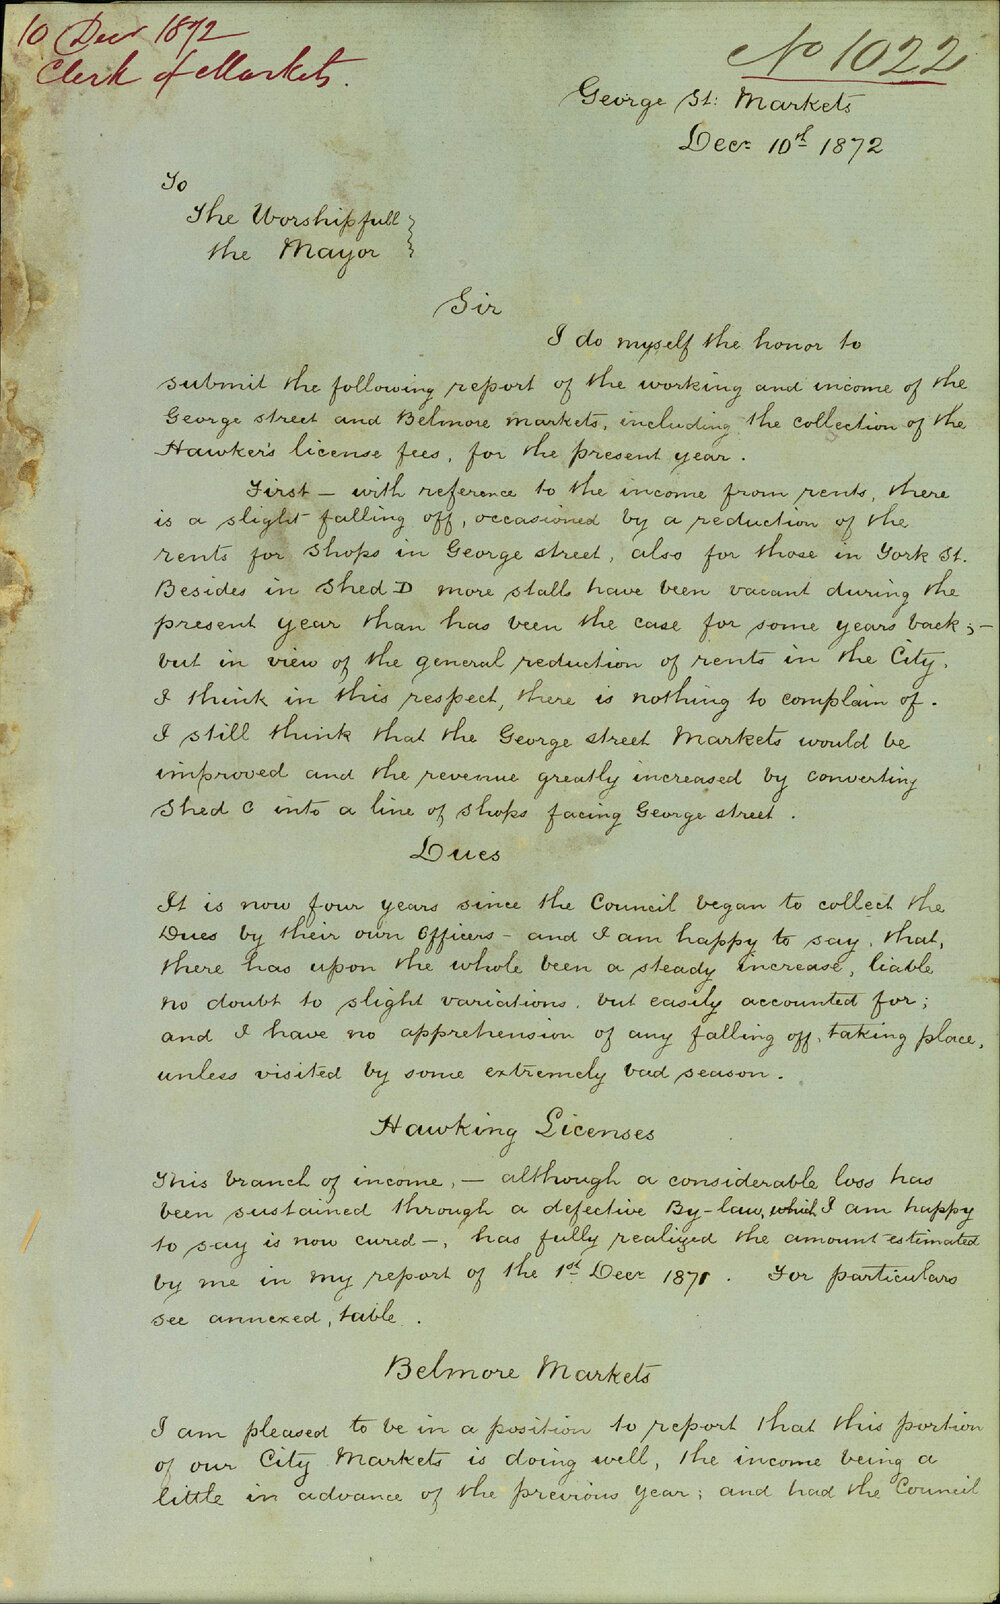 10 Decr 1872
Clerk of Markets.
No 1022
George St: Markets
Decr 10th 1872
To
The Worshipfull
the Mayor
Sir
I do myself the honor to
submit the following report of the working and income of the
George street and Belmore Markets, including the collection of the
Hawker's license fees, for the present year.
First — with reference to the income from rents, there
is a slight falling off, occasioned by a reduction of the
rents for Shops in George street, also for those in York St.
Besides in Shed D more stalls have been vacant during the
present year than has been the case for some years back; —
but in view of the general reduction of rents in the City,
I think in this respect, there is nothing to complain of.
I still think that the George street Markets would be
improved and the revenue greatly increased by converting
Shed C into a line of Shops facing George street.
Dues
It is now four years since the Council began to collect the
Dues by their own Officers – and I am happy to say, that,
there has upon the whole been a steady increase, liable
no doubt to slight variations, but easily accounted for;
and I have no apprehension of any falling off, taking place,
unless visited by some extremely bad season.
Hawking Licenses
This branch of income, — although a considerable loss has
been sustained through a defective By-law, which I am happy
to say is now cured —, has fully realized the amount estimated
by me in my report of the 1st Decr 1871. For particulars
see annexed, table.
Belmore Markets
I am pleased to be in a position to report that this portion
of our City Markets is doing well, the income being a
little in advance of the previous year; and had the Council